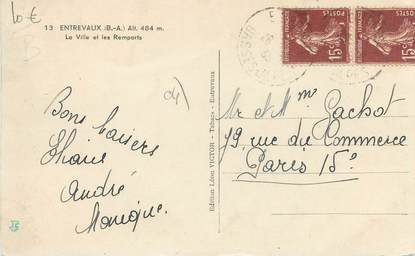 10 €
13 ENTREVAUX (B.-A.) Alt. 484 m.
La Ville et les Remparts
04)
Bons baisers
André
Monique.
Edition Léon VICTOR - Tabacs - Entrevaux
REPUBLIQUE FRANÇAISE
POSTES
15c
REPUBLIQUE FRANÇAISE
POSTES
15c
Mr et Mme Gachot
79 rue du Commerce
Paris 15e